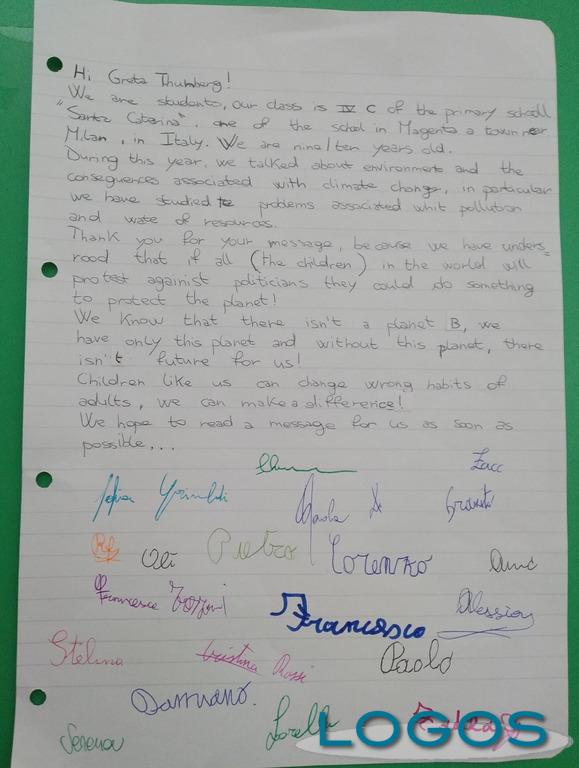 Hi Greta Thumberg!
We are students, our class is IV C of the primary schooll
"Santa Caterina", one of the school in Magenta a town near
Milan, in Italy. We are nine/ten years old.
During this year, we talked about environment and the
consequences associated with climate change, in particular
we have studied problems associated whit pollution
and wate of resources.
Thank you for your message, because we have unders=
rood that if all (the children) in the world will
protest againist politicians they could do something
to protect the planet!
We know that there isn't a planet B, we
have only this planet and without this planet, there
isn't future for us!
Children like us can change wrong habits of
adults, we can make a difference!
We hope to read a message for us as soon as
possible...
Zacc
Paola
Pietro Lorenzo
Francesco Alession
Stelina Cristina Rossi Paolo
Damiano.
Serena Lorella
LOGOS